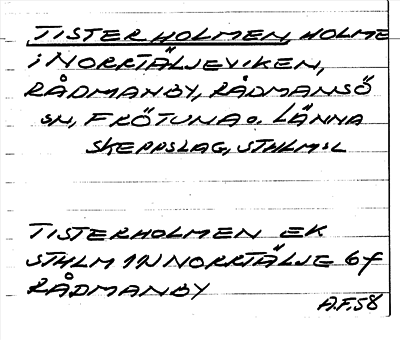 TISTERHOLMEN, HOLME
i NORRTÄLJEVIKEN,
RÅDMANBY, RÅDMANSÖ
SN, FRÖTUNA o. LÄNNA
SKEPPSLAG, STHLM:L
TISTERHOLMEN EK
STHLM 1N NORRTÄLJE 6f
RÅDMANBY
A.F.58